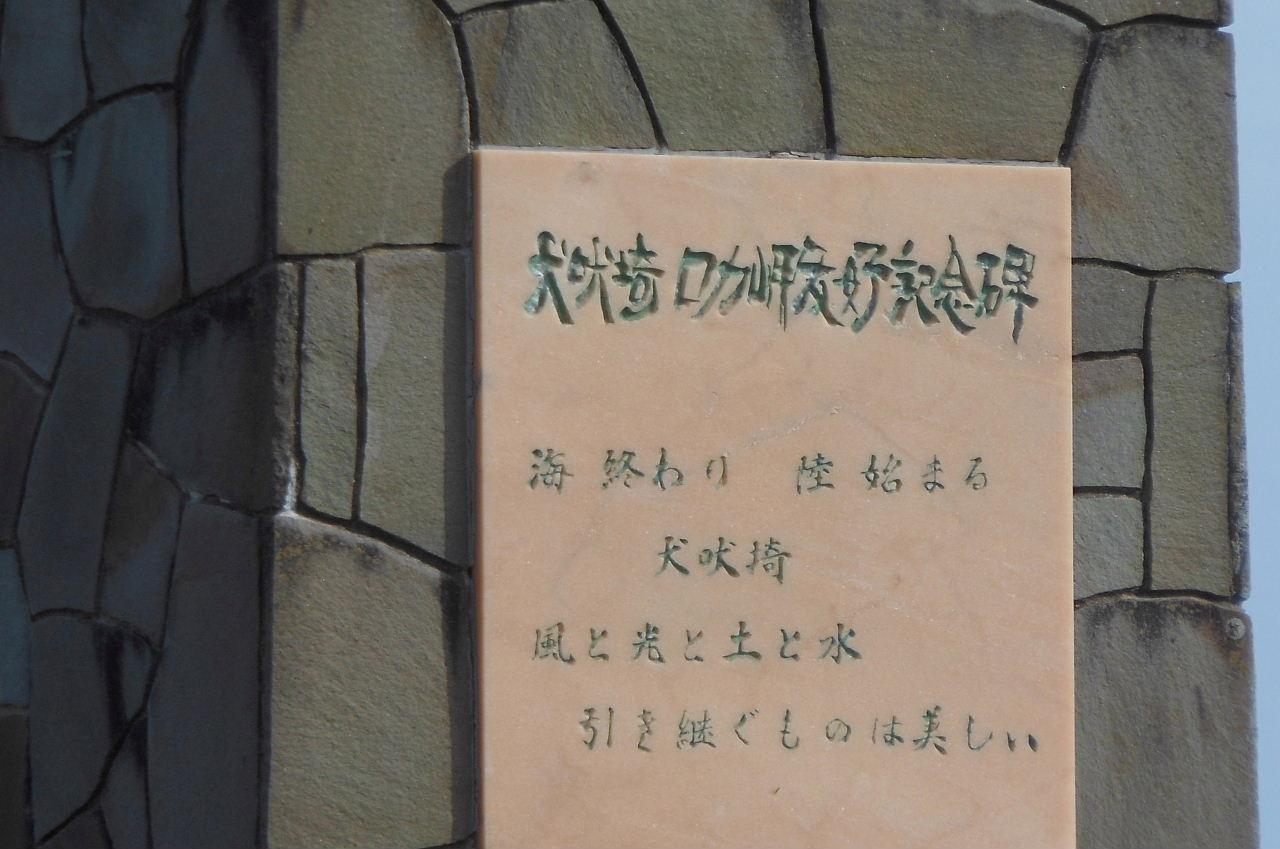 犬吠埼ロカ岬友好記念碑
海 終わり 陸 始まる
犬吠埼
風と光と土と水
引き継ぐものは美しい